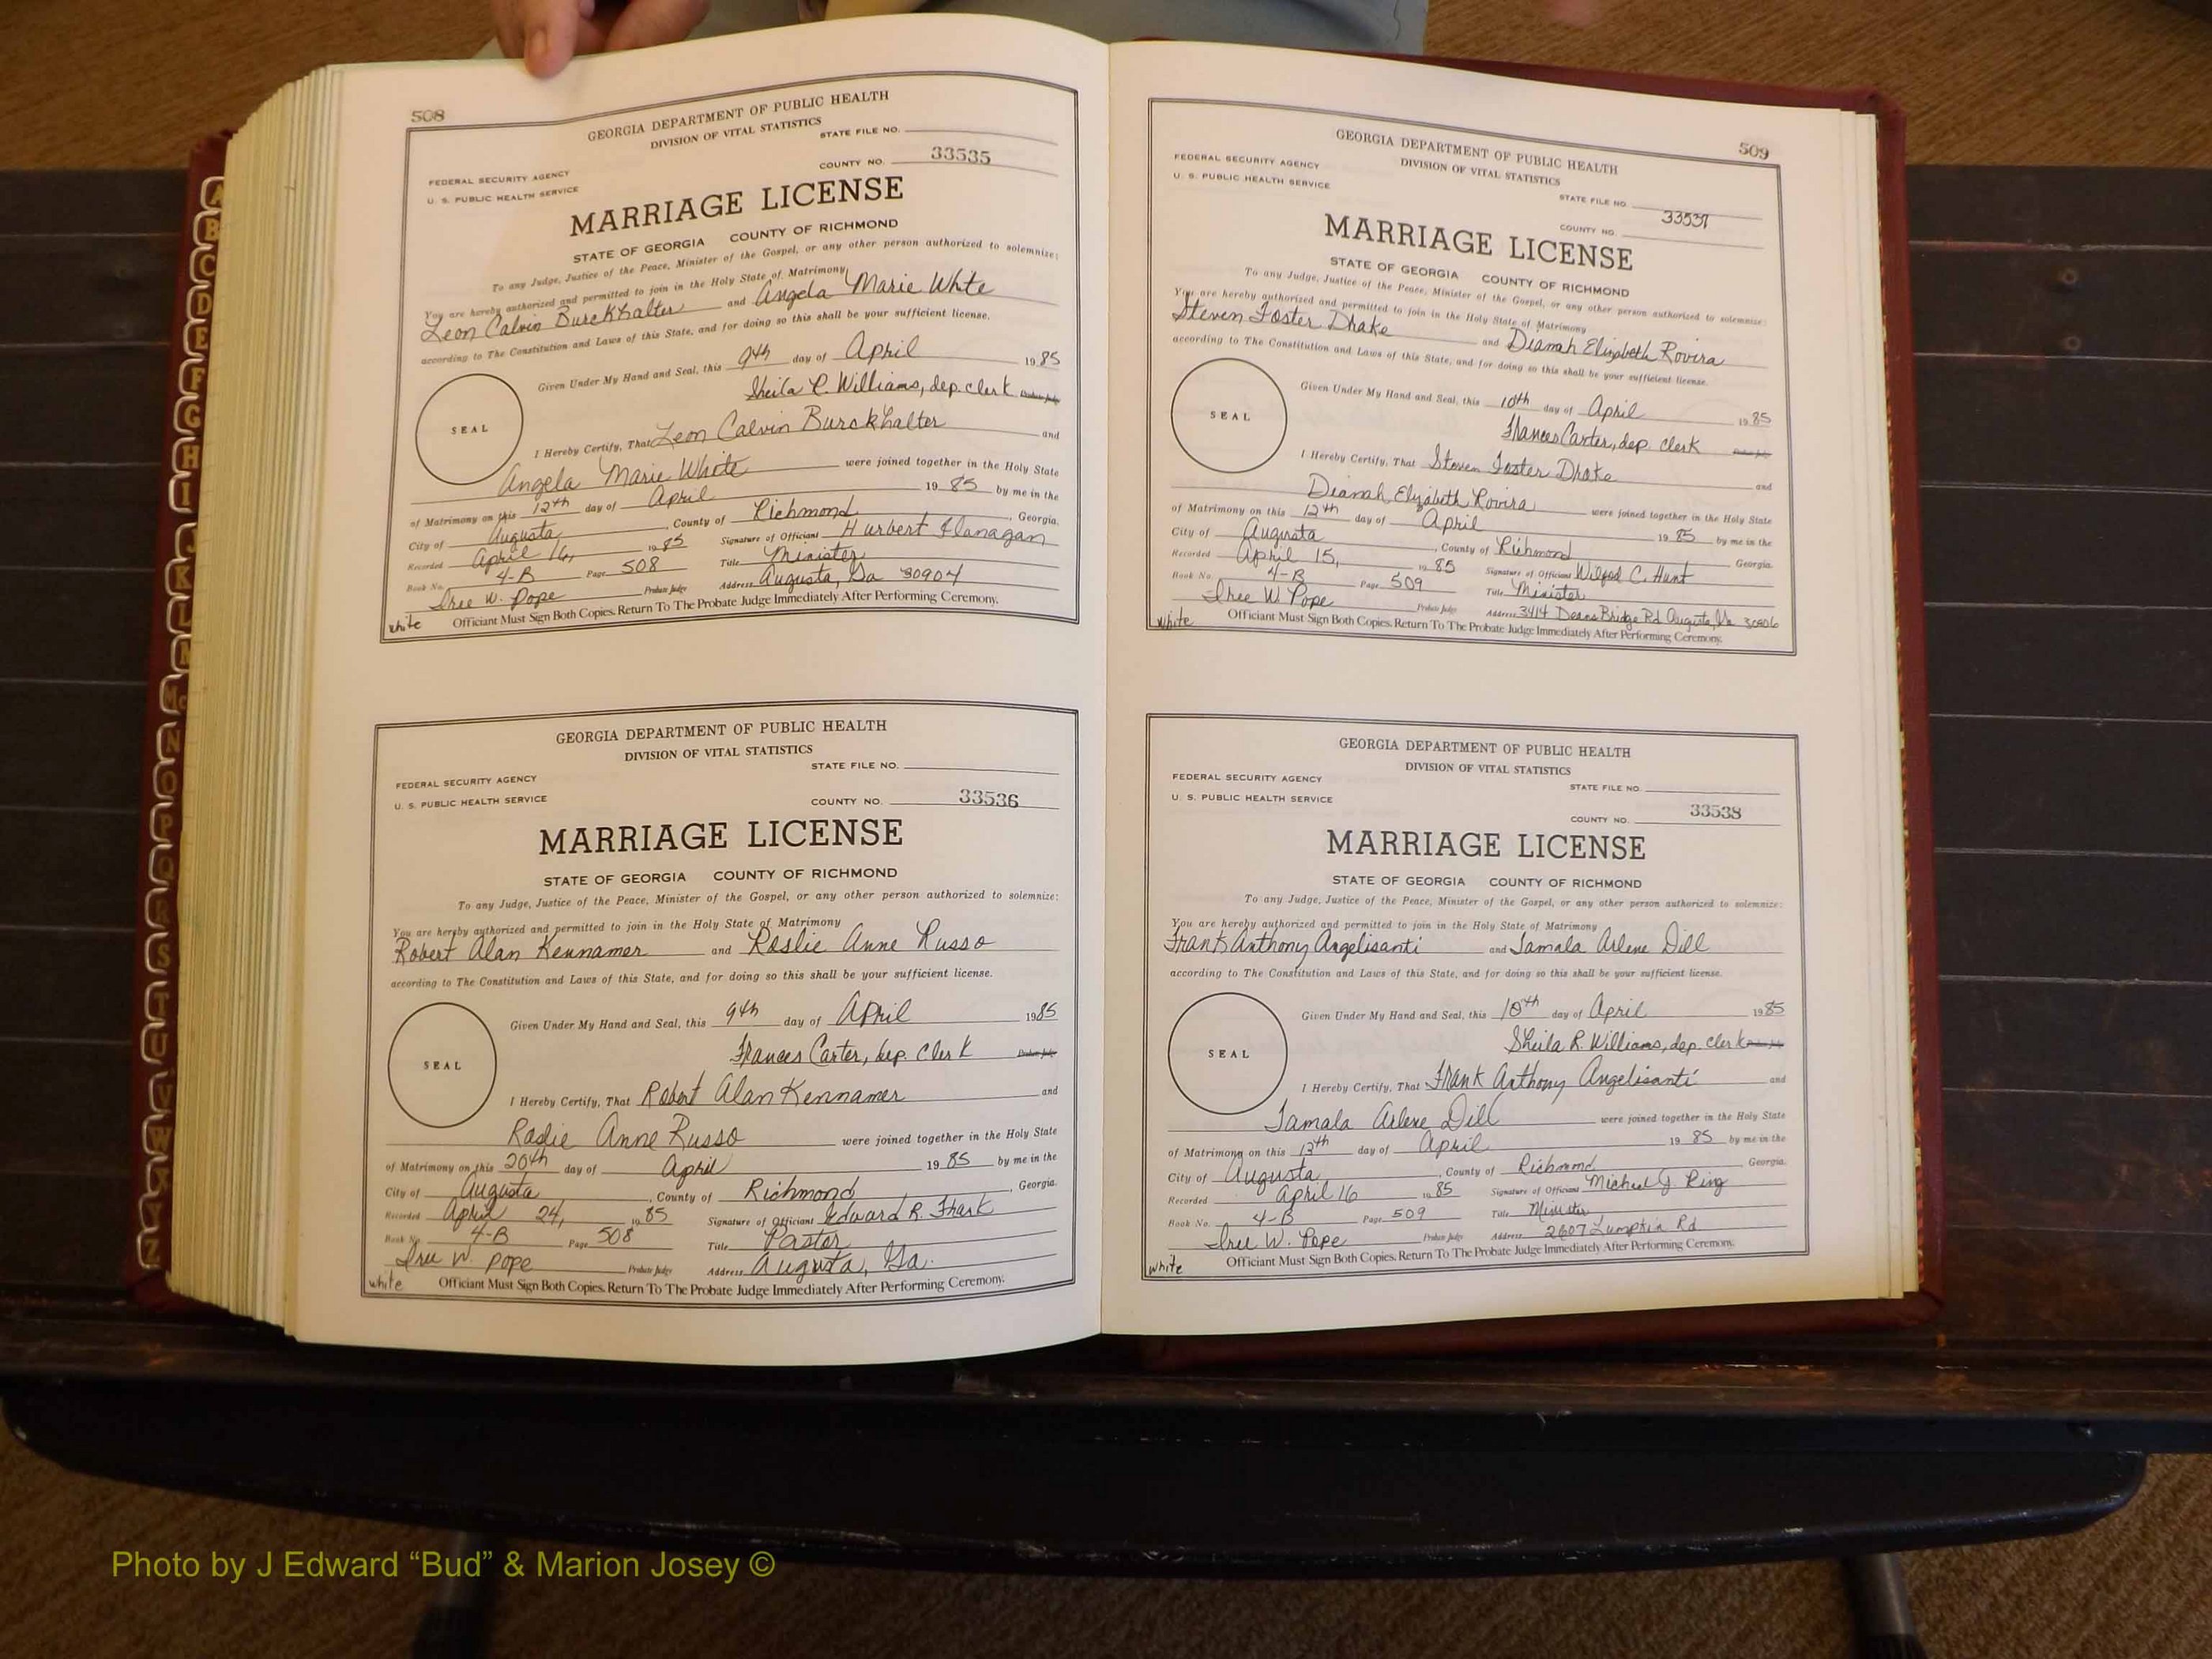 508
GEORGIA DEPARTMENT OF PUBLIC HEALTH
DIVISION OF VITAL STATISTICS
STATE FILE NO.
COUNTY NO. 33535
FEDERAL SECURITY AGENCY
U. S. PUBLIC HEALTH SERVICE
MARRIAGE LICENSE
STATE OF GEORGIA COUNTY OF RICHMOND
To any Judge, Justice of the Peace, Minister of the Gospel, or any other person authorized to solemnize:
You are hereby authorized and permitted to join in the Holy State of Matrimony
Leon Calvin Burckhalter and Angela Marie White
according to The Constitution and Laws of this State, and for doing so this shall be your sufficient license.
Given Under My Hand and Seal, this 9th day of April 1985
Sheila R. Williams, dep. clerk Probate Judge
SEAL
I Hereby Certify, That Leon Calvin Burckhalter and
Angela Marie White were joined together in the Holy State
of Matrimony on this 12th day of April 1985 by me in the
City of Augusta, County of Richmond, Georgia.
Recorded April 16, 1985 Signature of Officiant Hurbert Flanagan
Book No. 4-B Page 508 Title Minister
Iree W. Pope Probate Judge Address Augusta, Ga 30904
white Officiant Must Sign Both Copies. Return To The Probate Judge Immediately After Performing Ceremony.
GEORGIA DEPARTMENT OF PUBLIC HEALTH
DIVISION OF VITAL STATISTICS
STATE FILE NO.
FEDERAL SECURITY AGENCY
U. S. PUBLIC HEALTH SERVICE
COUNTY NO. 33536
MARRIAGE LICENSE
STATE OF GEORGIA COUNTY OF RICHMOND
To any Judge, Justice of the Peace, Minister of the Gospel, or any other person authorized to solemnize:
You are hereby authorized and permitted to join in the Holy State of Matrimony
Robert Alan Kennamer and Roslie Anne Russo
according to The Constitution and Laws of this State, and for doing so this shall be your sufficient license.
Given Under My Hand and Seal, this 9th day of April 1985
Frances Carter, dep. Clerk Probate Judge
SEAL
I Hereby Certify, That Robert Alan Kennamer and
Roslie Anne Russo were joined together in the Holy State
of Matrimony on this 20th day of April 1985 by me in the
City of Augusta, County of Richmond, Georgia.
Recorded April 24, 1985 Signature of Officiant Edward R. Frank
Book No. 4-B Page 508 Title Pastor
Iree W. Pope Probate Judge Address Augusta, Ga.
white Officiant Must Sign Both Copies. Return To The Probate Judge Immediately After Performing Ceremony.
509
GEORGIA DEPARTMENT OF PUBLIC HEALTH
DIVISION OF VITAL STATISTICS
FEDERAL SECURITY AGENCY
U. S. PUBLIC HEALTH SERVICE
STATE FILE NO.
33537
COUNTY NO.
MARRIAGE LICENSE
STATE OF GEORGIA COUNTY OF RICHMOND
To any Judge, Justice of the Peace, Minister of the Gospel, or any other person authorized to solemnize:
You are hereby authorized and permitted to join in the Holy State of Matrimony
Steven Foster Drake and Dianah Elizabeth Rovira
according to The Constitution and Laws of this State, and for doing so this shall be your sufficient license.
Given Under My Hand and Seal, this 10th day of April 1985
Frances Carter, dep. clerk Probate Judge
SEAL
I Hereby Certify, That Steven Foster Drake and
Dianah Elizabeth Rovira were joined together in the Holy State
of Matrimony on this 12th day of April 1985 by me in the
City of Augusta, County of Richmond Georgia.
Recorded April 15, 1985 Signature of Officiant Wilfred C. Hunt
Book No. 4-B Page 509 Title Minister
Iree W. Pope Probate Judge Address 3414 Deans Bridge Rd Augusta, Ga 30906
white Officiant Must Sign Both Copies. Return To The Probate Judge Immediately After Performing Ceremony.
GEORGIA DEPARTMENT OF PUBLIC HEALTH
DIVISION OF VITAL STATISTICS
FEDERAL SECURITY AGENCY
STATE FILE NO.
U. S. PUBLIC HEALTH SERVICE
COUNTY NO. 33538
MARRIAGE LICENSE
STATE OF GEORGIA COUNTY OF RICHMOND
To any Judge, Justice of the Peace, Minister of the Gospel, or any other person authorized to solemnize:
You are hereby authorized and permitted to join in the Holy State of Matrimony
Frank Anthony Angelisanti and Tamala Arlene Dill
according to The Constitution and Laws of this State, and for doing so this shall be your sufficient license.
Given Under My Hand and Seal, this 10th day of April 1985
Sheila R. Williams, dep. clerk Probate Judge
SEAL
I Hereby Certify, That Frank Anthony Angelisanti and
Tamala Arlene Dill were joined together in the Holy State
of Matrimony on this 13th day of April 1985 by me in the
City of Augusta, County of Richmond Georgia.
Recorded April 16 1985 Signature of Officiant Michael J. Ring
Book No. 4-B Page 509 Title Minister
Iree W. Pope Probate Judge Address 2607 Lumpkin Rd
white Officiant Must Sign Both Copies. Return To The Probate Judge Immediately After Performing Ceremony.
A
B
C
D
E
F
G
H
I
J
K
L
M
Mc
N
O
P
Q
R
S
T
U
V
W
X
Y
Z
Photo by J Edward “Bud” & Marion Josey ©